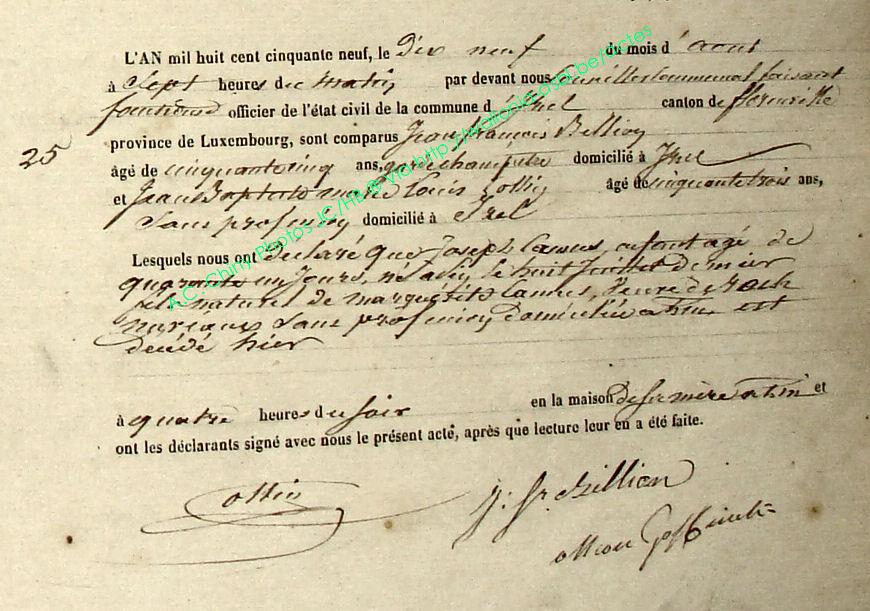 L'AN mil huit cent cinquante neuf, le Dix neuf du mois d'aout
à Sept heures du matin par devant nous Conseiller Communal faisant
fonctions officier de l'état civil de la commune d'Izel canton de florenville
25
province de Luxembourg, sont comparus Jean françois Billion
âgé de cinquante cinq ans, garde champetre domicilié à Izel
et Jean Baptiste marie Louis Collin âgé de cinquante trois ans,
Sans profession domicilié à Izel
Lesquels nous ont declaré que Joseph Camus, enfant agé de
quarante un Jours, né à le huit Juillet dernier
fils naturel de marguerite Camus, veuve de
Sans profession domiciliée est
decédé hier
à quatre heures du soir en la maison de sa mère et
ont les déclarants signé avec nous le présent acte, après que lecture leur en a été faite.
J. fr. Billion